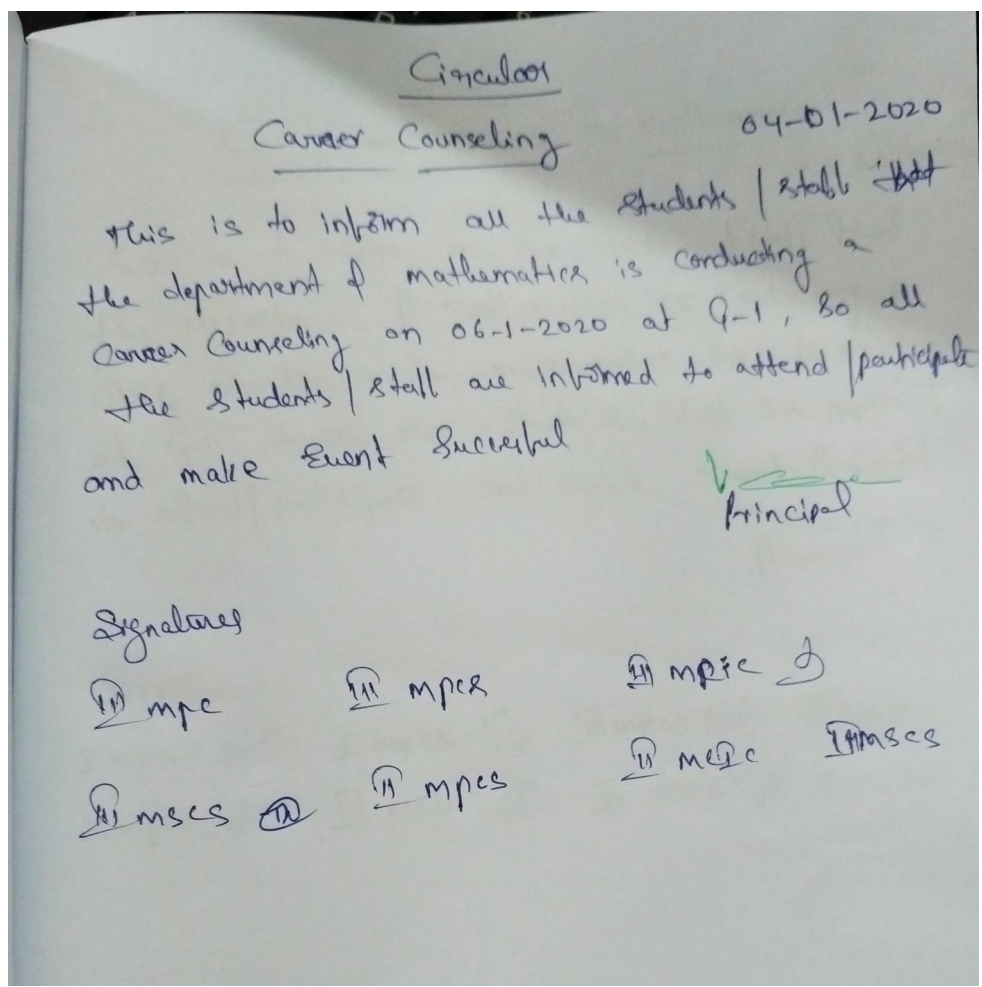 Circular
Career Counseling 04-01-2020
This is to inform all the students / staff
the department of mathematics is conducting a
Career Counseling on 06-1-2020 at G-1, So all
the students / staff are informed to attend / participate
and make Event Successful
Principal
Signatures
III mpc III mpcs III
III mscs II mpcs II II mscs